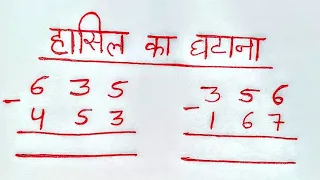 हासिल का घटाना
6 3 5
- 4 5 3
3 5 6
- 1 6 7